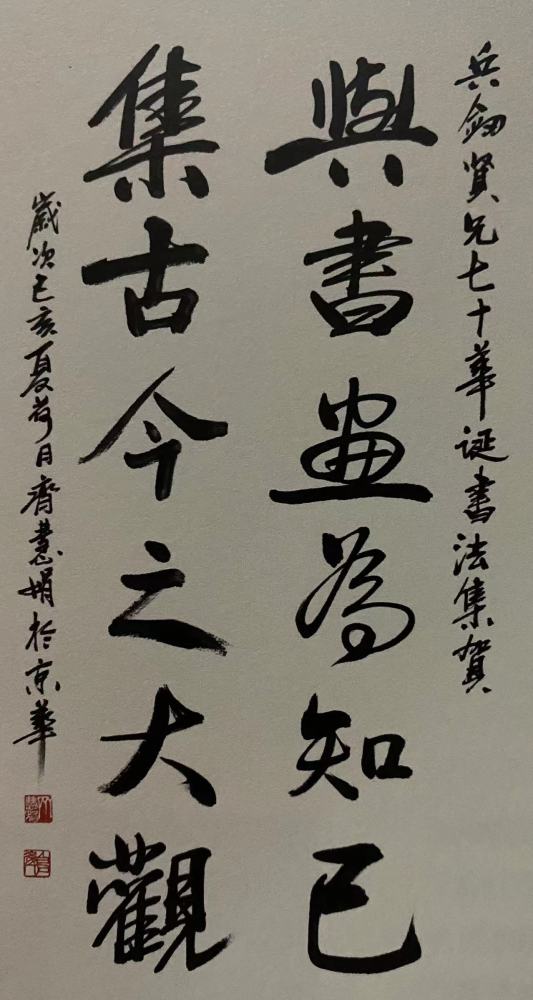 兵劒賢兄七十華誕書法集賀
與書畫為知己
集古今之大觀
歲次己亥夏荷月齊慧娟於京華